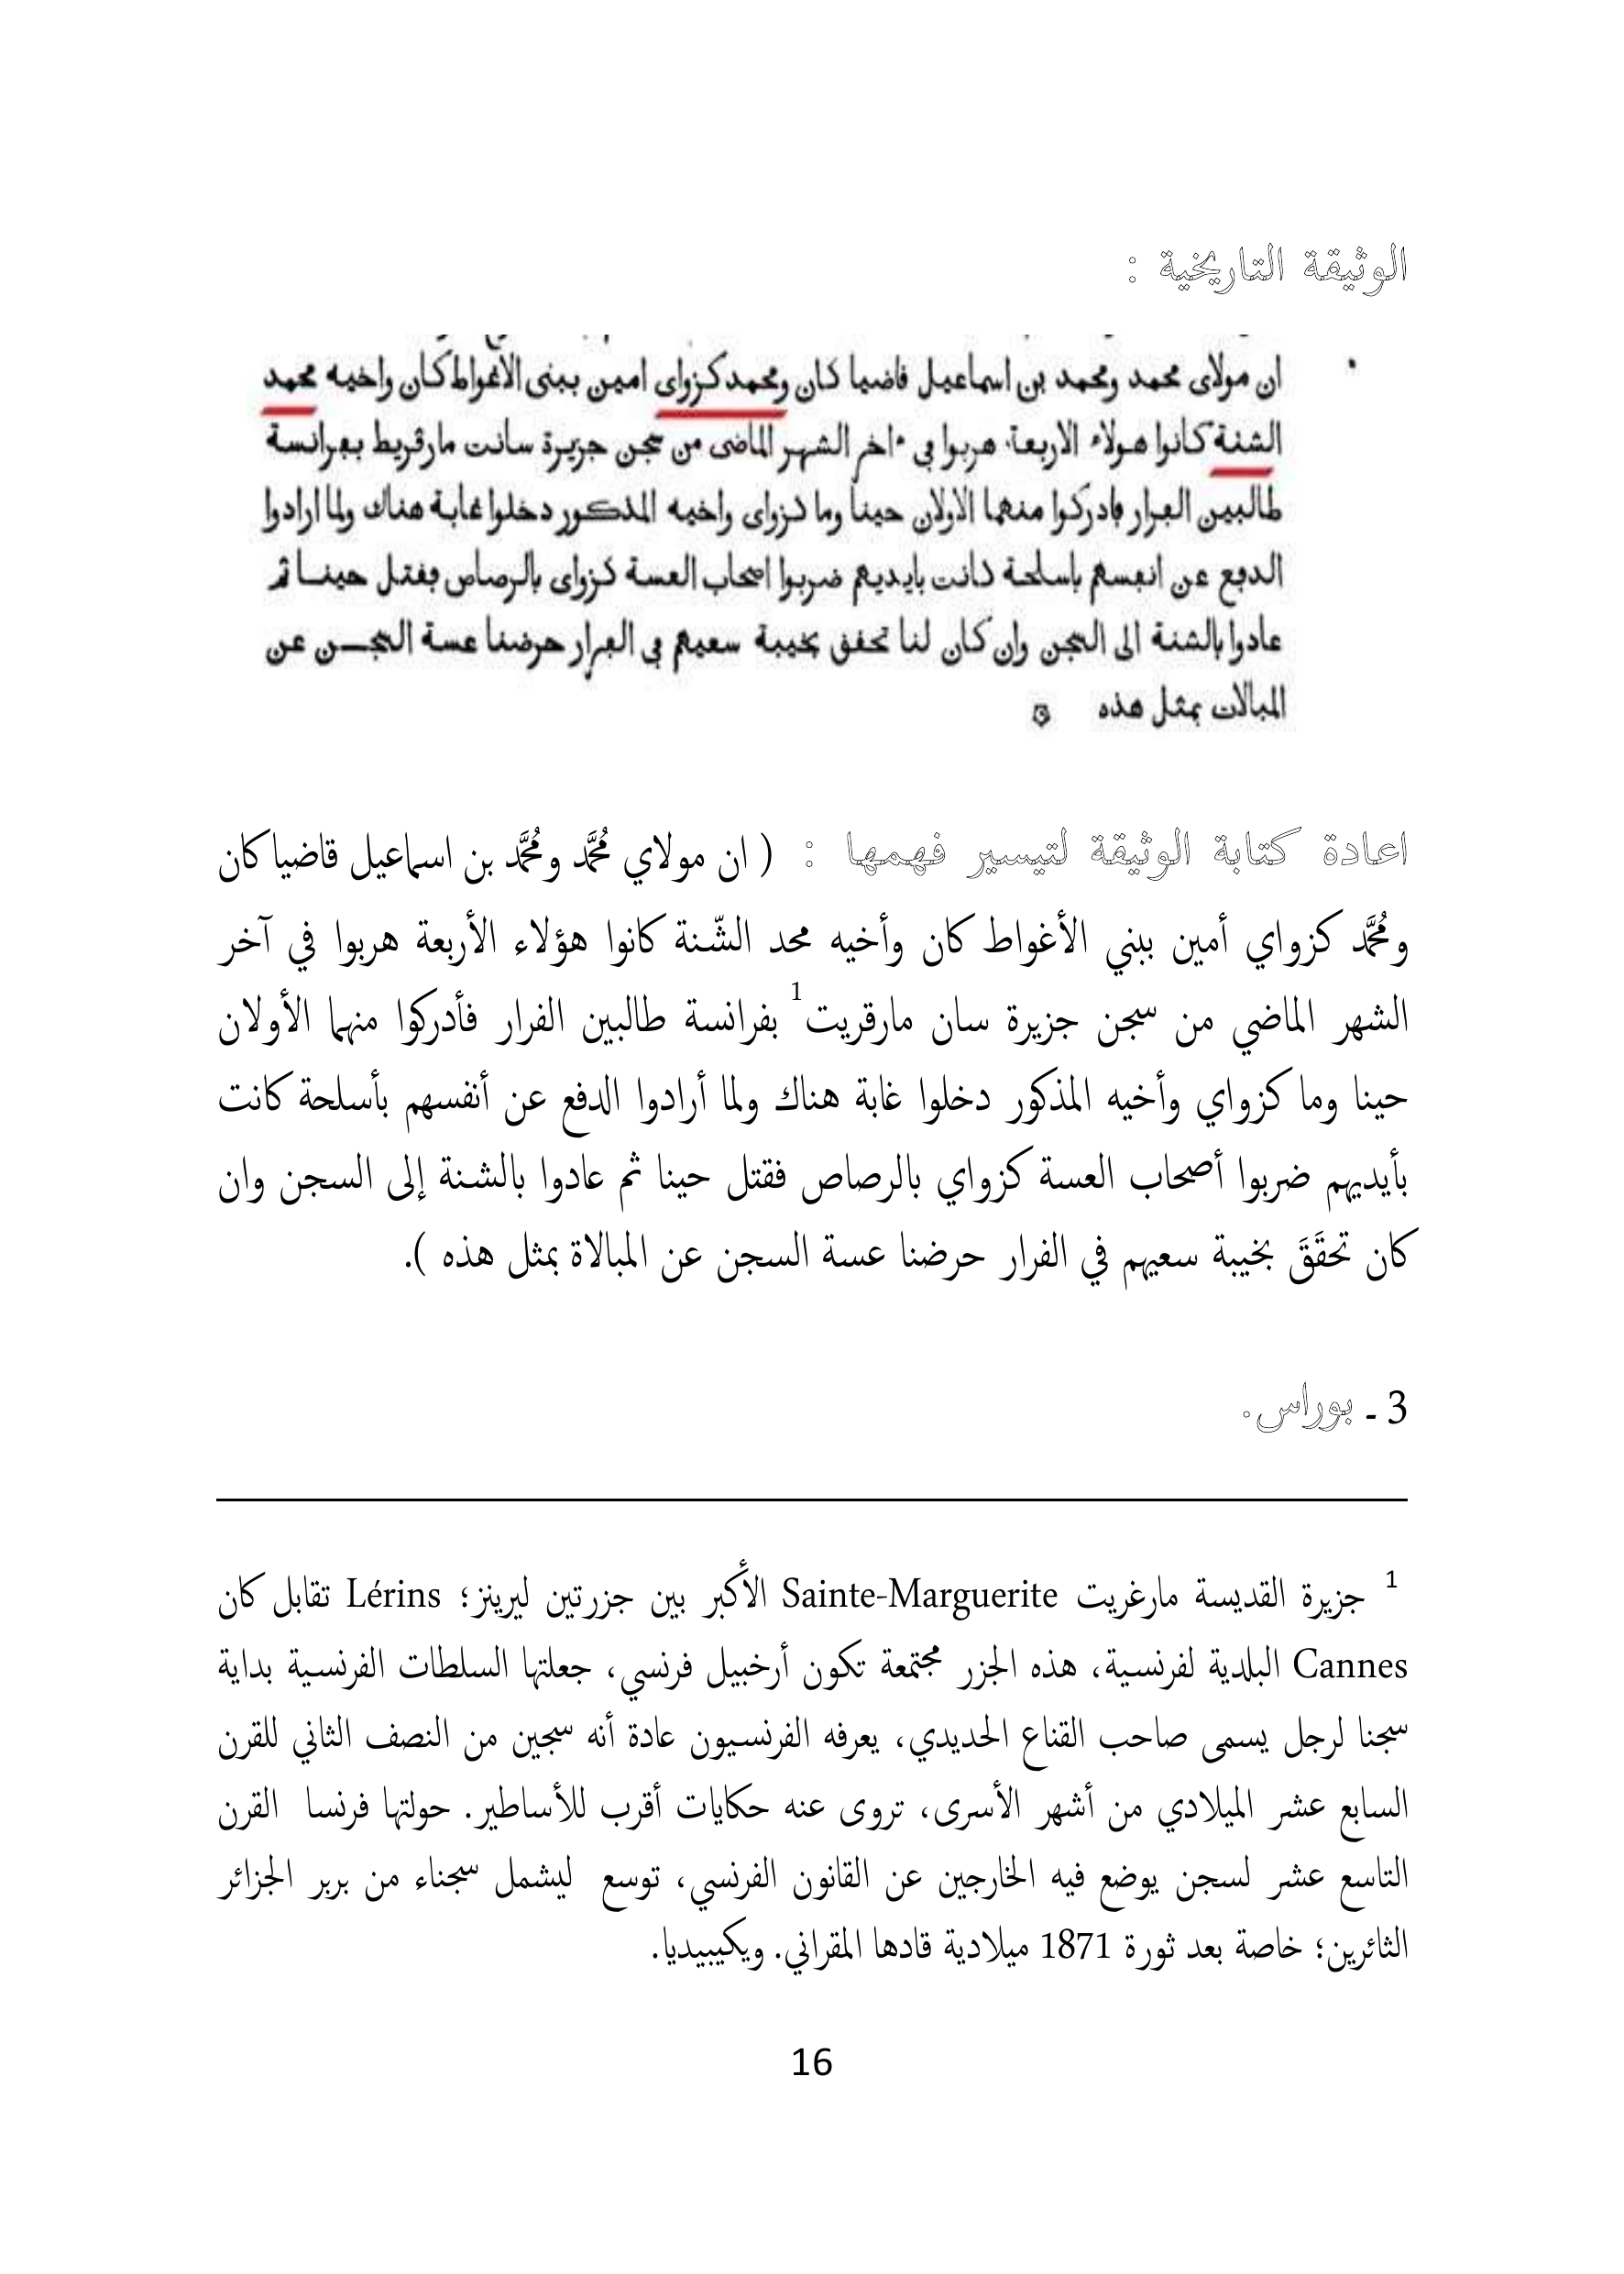 الوثيقة التاريخية :
ان مولاى محمد ومحمد بن اسماعيل فاضيا كان ومحمد كزواى امين ببنى الاغواط كان واخيه محمد
الشنة كانوا هولاء الاربعة هربوا ڢى ءاخر الشهر الماضى من سجن جزيرة سانت مارڤريط بڢرانسة
طالبين الڢرار ڢادركوا منهما الاولان حينا وما كزواى واخيه المذكور دخلوا غابة هناك ولما ارادوا
الدڢع عن انڢسهم باسلحة كانت بايديهم ضربوا اصحاب العسة كزواى بالرصاص ڢفتل حينا ثم
عادوا بالشنة الى السجن وان كان لنا تحفق بخيبة سعيهم ڢى الڢرار حرضنا عسة السجن عن
المبالات بمثل هذه
اعادة كتابة الوثيقة لتيسير فهمها : ( ان مولاي محمَّد ومُحمَّد بن اسماعيل قاضيا كان
ومُحمَّد كزواي أمين ببني الأغواط كان وأخيه محد الشّنة كانوا هؤلاء الأربعة هربوا في آخر
الشهر الماضي من سجن جزيرة سان مارقريت1 بفرانسة طالبين الفرار فأدركوا منهما الأولان
حينا وما كزواي وأخيه المذكور دخلوا غابة هناك ولما أرادوا الدفع عن أنفسهم بأسلحة كانت
بأيديهم ضربوا أصحاب العسة كزواي بالرصاص فقتل حينا ثم عادوا بالشنة إلى السجن وان
كان تحقَقَ بخيبة سعيهم في الفرار حرضنا عسة السجن عن المبالاة بمثل هذه ).
3 ـ بوراس.
1 جزيرة القديسة مارغريت Sainte-Marguerite الأكبر بين جزرتين ليرينز؛ Lérins تقابل كان
Cannes البلدية لفرنسية، هذه الجزر مجتمعة تكون أرخبيل فرنسي، جعلتها السلطات الفرنسية بداية
سجنا لرجل يسمى صاحب القناع الحديدي، يعرفه الفرنسيون عادة أنه سجين من النصف الثاني للقرن
السابع عشر الميلادي من أشهر الأسرى، تروى عنه حكايات أقرب للأساطير. حولتها فرنسا القرن
التاسع عشر لسجن يوضع فيه الخارجين عن القانون الفرنسي، توسع ليشمل سجناء من بربر الجزائر
الثائرين؛ خاصة بعد ثورة 1871 ميلادية قادها المقراني. ويكيبيديا.
16